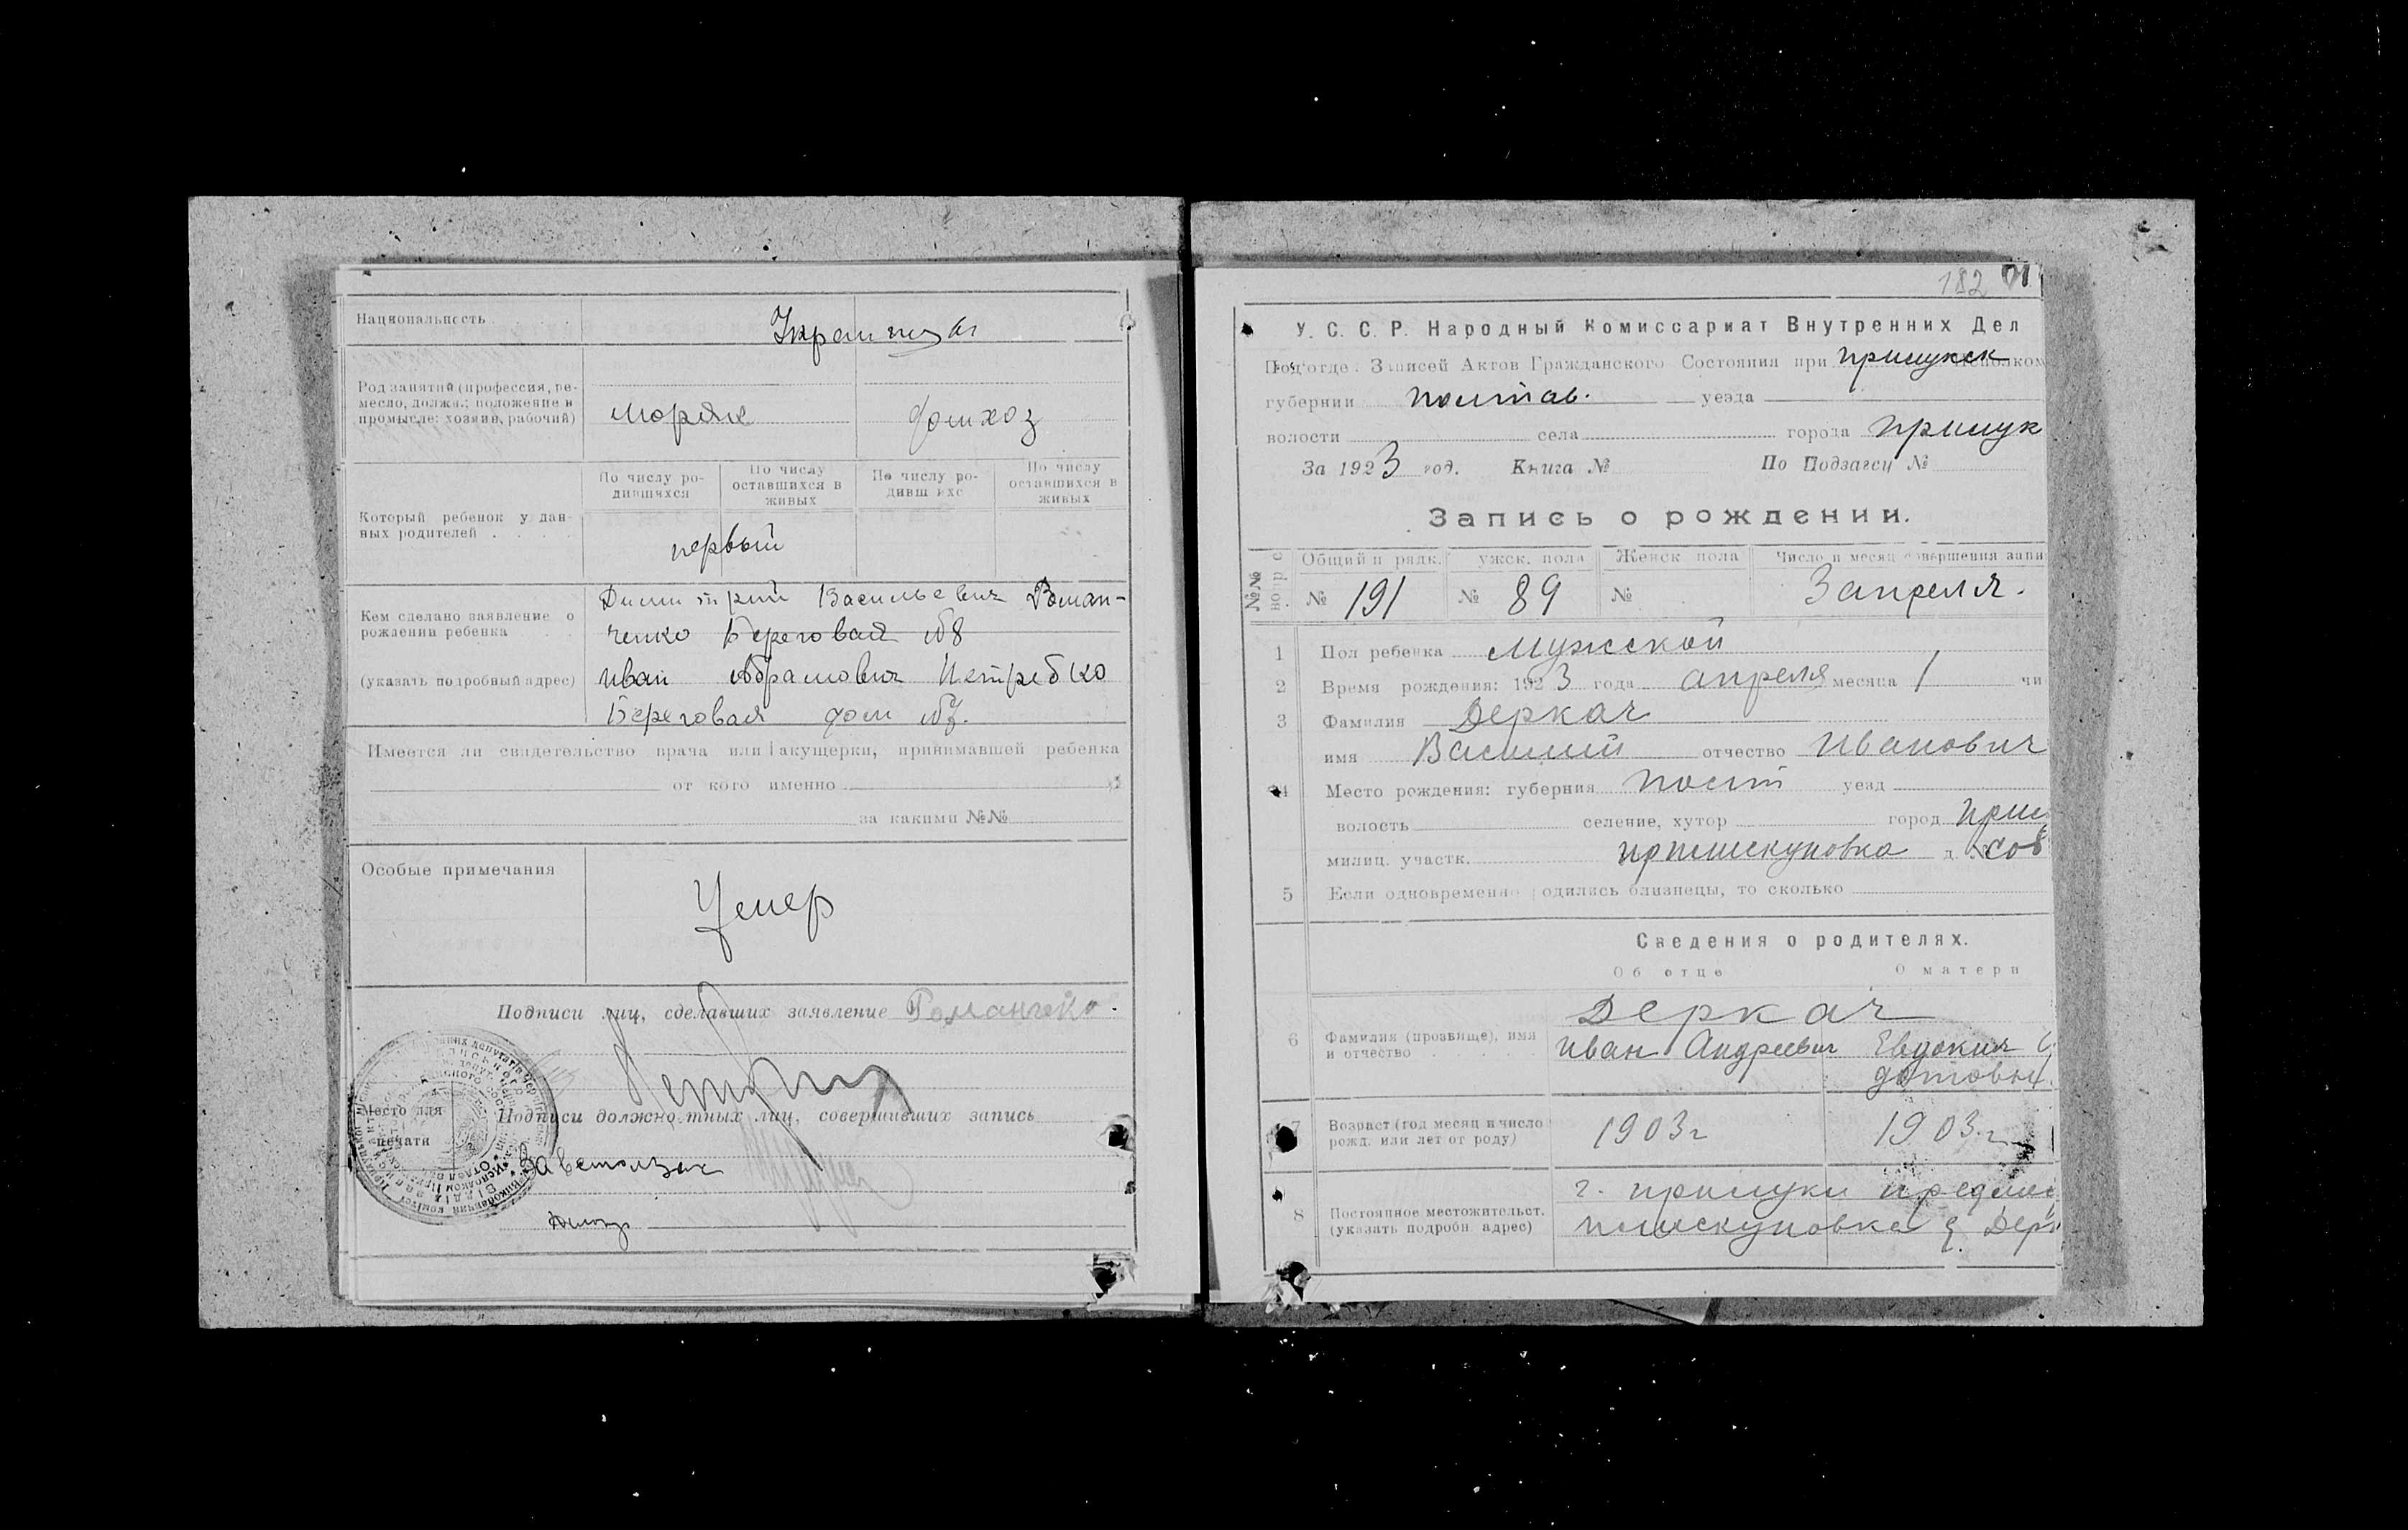 Национальность
Украинцы
Род занятий (профессия, ре-
месло, должн.; положение в
промысле: хозяин, рабочий)
моряк домхоз
Который ребенок у дан-
ных родителей
По числу ро-
дившихся
По числу
оставшихся в
живых
По числу ро-
дивш ихс
По числу
оставшихся в
живых
первый
Кем сделано заявление о
рождении ребенка
(указать подробный адрес)
Димитрий Васильевич Роман-
ченко Береговая №8
Иван Абрамович Петребко
Береговая дом №7.
Имеется ли свидетельство врача или акушерки, принимавшей ребенка
от кого именно
за какими №№
Особые примечания
Умер
Подписи лиц, сделавших заявление Романченко.
Место для
печати
Подписи должностных лиц, совершивших запись
Завстолзаг
182
У. С. С. Р. Народный Комиссариат Внутренних Дел
Подотдел Записей Актов Гражданского Состояния при Прилукск Исполком
губернии Полтав. уезда
волости села города Прилук
За 1923 год. Книга № По Подзагсу №
Запись о рождении.
Общий п рядк. ужск. пола Женск пола Число и месяц совершения запи
№ 191 № 89 № 3 апреля.
1 Пол ребенка Мужской
2 Время рождения: 1923 года апреля месяца 1 чи
3 Фамилия Деркач
имя Василий отчество Иванович
4 Место рождения: губерния Полт уезд
волость селение, хутор город Прил
милиц. участк. д. соб
5 Если одновременно родились близнецы, то сколько
Сведения о родителях.
Об отце О матери
Деркач
6 Фамилия (прозвище), имя
и отчество
Иван Андреевич Евдокия
7 Возраст (год месяц и число
рожд. или лет от роду)
1903 г 1903 г
8 Постоянное местожительст.
(указать подробн адрес)
г. Прилуки предмес
Плискуновка д. Дерк